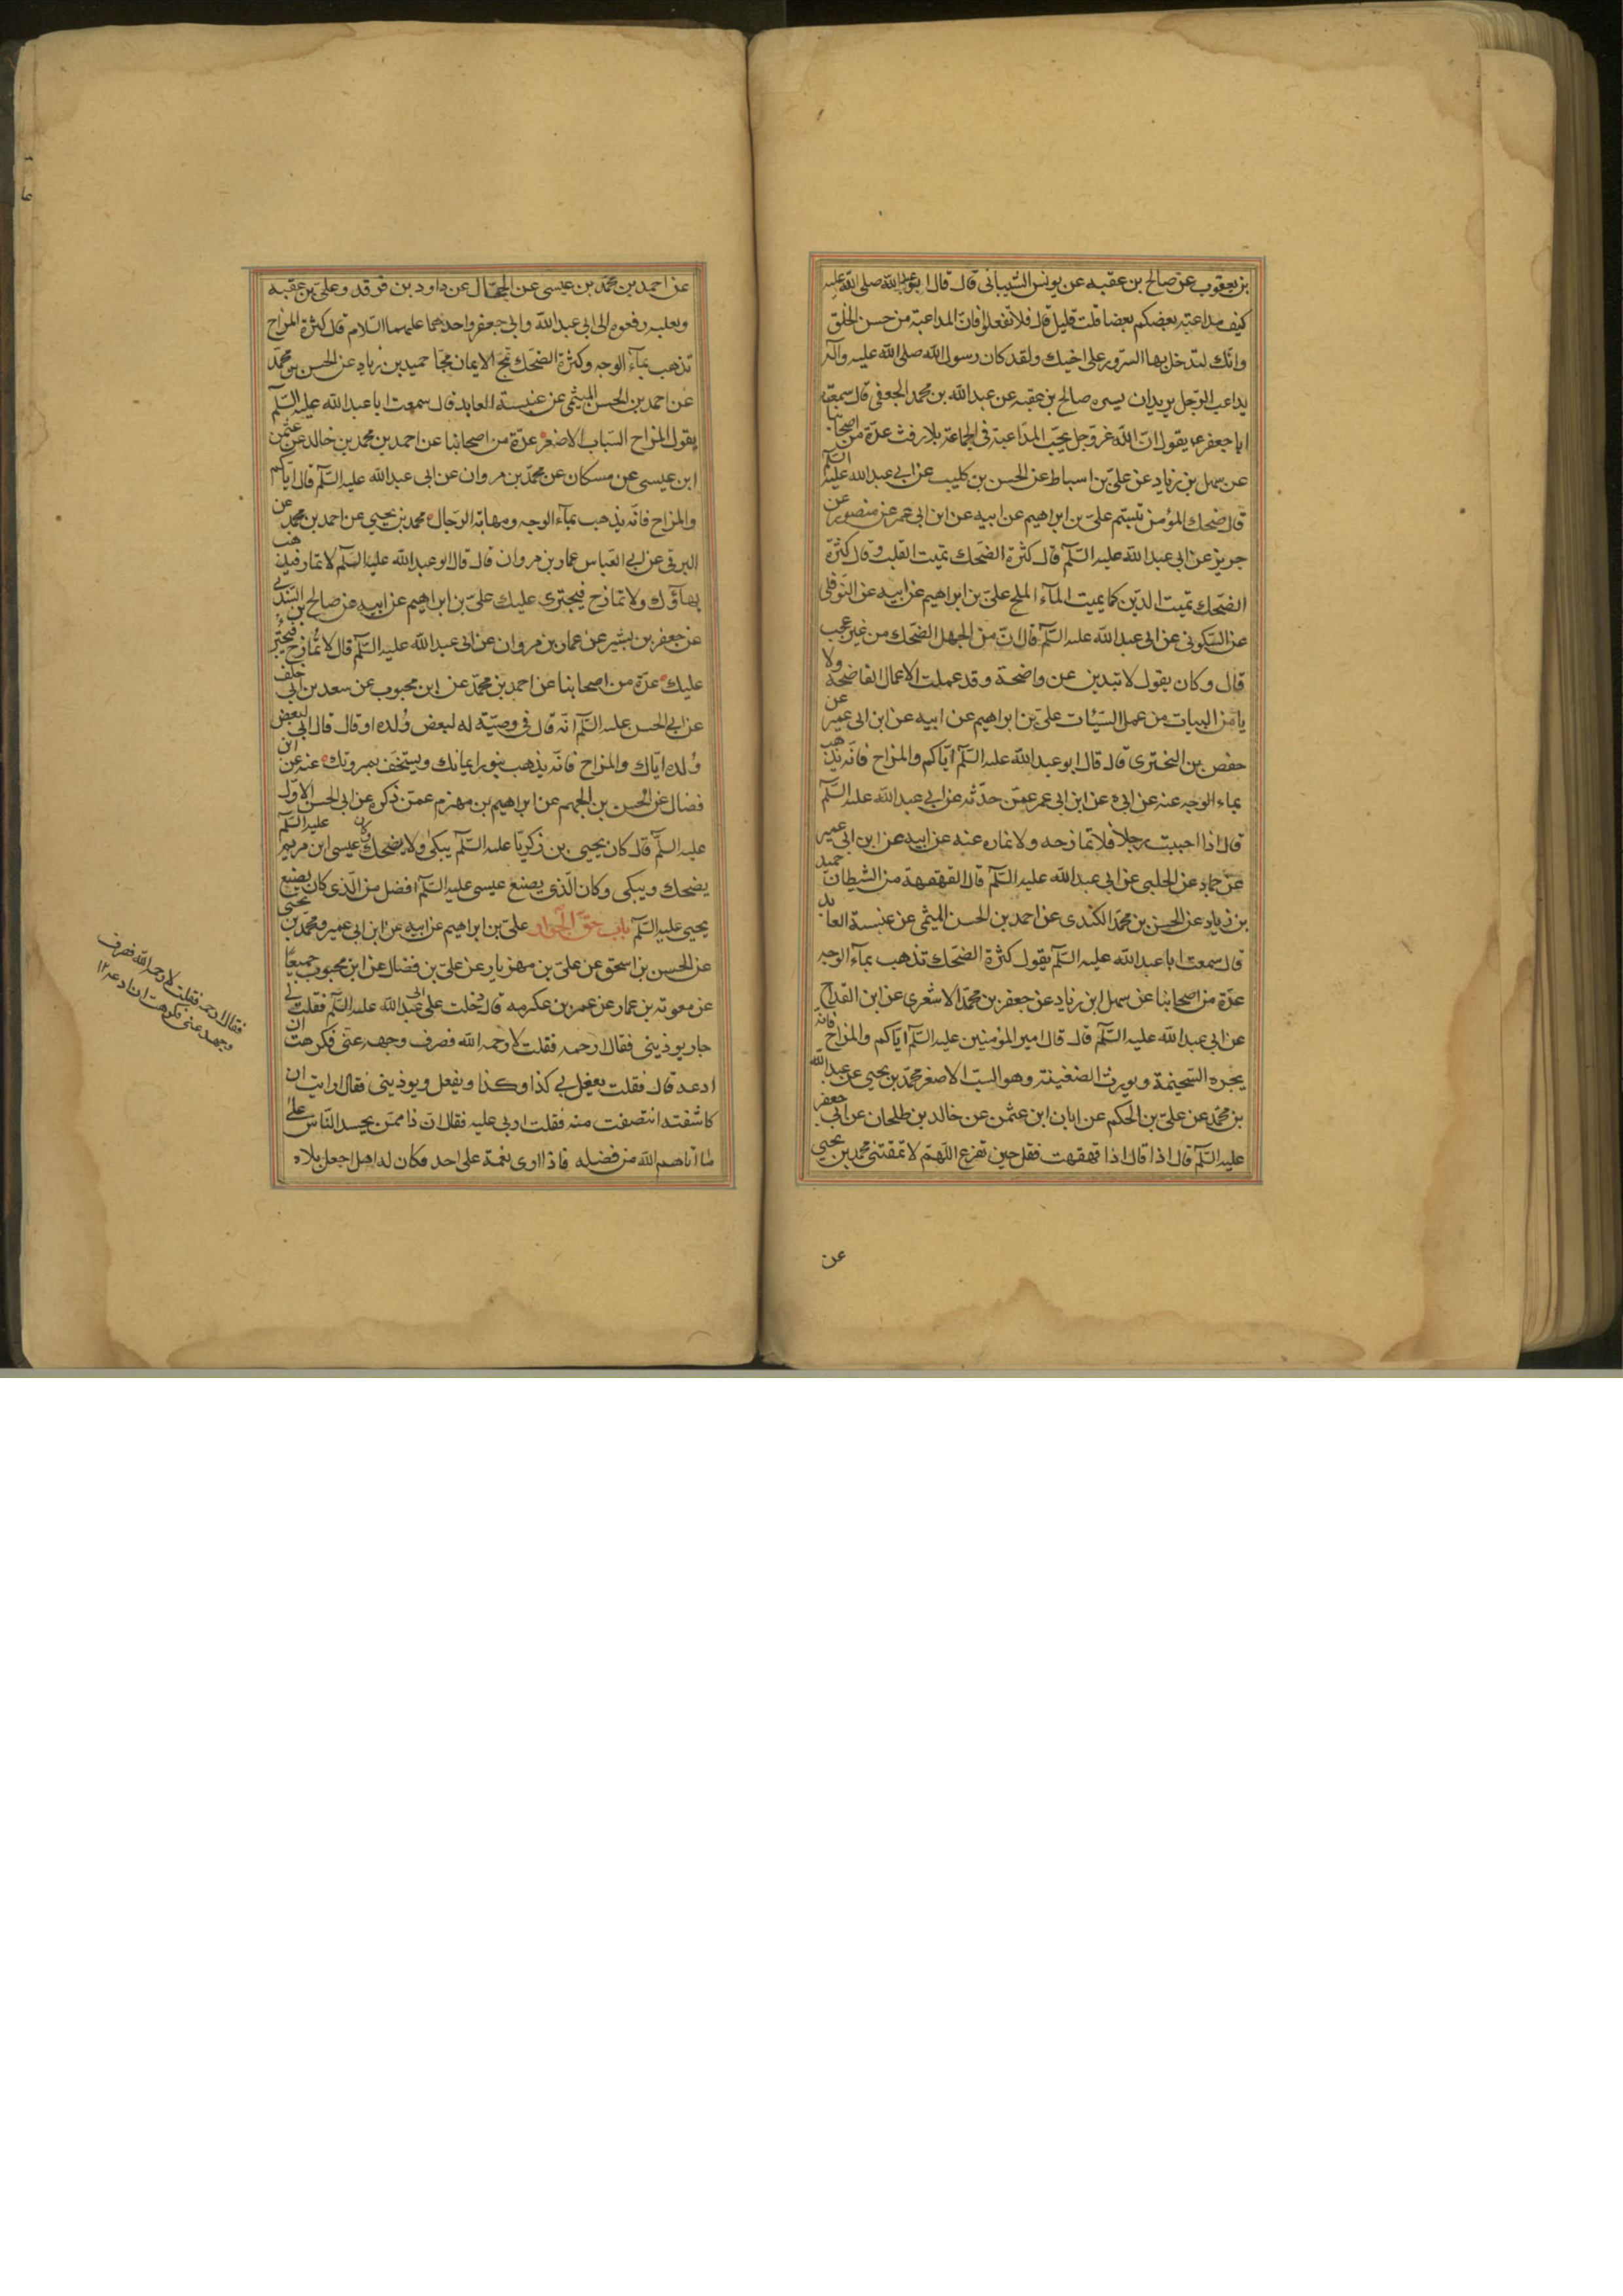 بن يعقوب عن صالح بن عقبه عن يونس الشيبانى قال قال ابو عبد الله صلى الله عليه
كيف مداعبة بعضكم بعضا قلت قليل قال فلا تفعلوا فان المداعبة من حسن الخلق
وانّك لتدخل بها السرور على اخيك ولقد كان رسول الله صلى الله عليه وآله
يداعب الرّجل يريد ان يسره صالح بن عقبه عن عبد الله بن محمد الجعفى قال سمعت
ابا جعفر ع يقول انّ الله عز وجل يحبّ المداعبة فى الجماعة بلا رفث عدّة من اصحابنا
عن سهل بن زياد عن علىّ بن اسباط عن الحسن بن كليب عن ابى عبد الله عليه السّلم
قال ضحك المؤمن تبسّم علىّ بن ابراهيم عن ابيه عن ابن ابى عمير عن منصور عن
حريز عن ابى عبد الله عليه السّلم قال كثرة الضحك تميت القلب وقال كثرة
الضّحك تميت الدّين كما يميت المآء الملح علىّ بن ابراهيم عن ابيه عن النّوفلى
عن السّكونى عن ابى عبد الله عليه السّلم قال انّ من الجهل الضّحك من غير عجب
قال وكان يقول لا تبدين عن واضحة وقد عملت الاعمال الفاضحة ولا
يامن البيات من عمل السّيّات علىّ بن ابراهيم عن ابيه عن ابن ابى عمير عن
حفص بن البخترى قال قال ابو عبد الله عليه السّلم ايّاكم والمزاح فانّه يذهب
بماء الوجه عنه عن ابيه عن ابن ابى عمير عمّن حدّثه عن ابى عبد الله عليه السّلم
قال اذا احببت رجلا فلا تمازحه ولا تماره عنه عن ابيه عن ابن ابى عمير
عن حماد عن الحلبى عن ابى عبد الله عليه السّلم قال القهقهة من الشيطان حميد
بن زياد عن الحسن بن محمّد الكندى عن احمد بن الحسن الميثمى عن عنبسة العابد
قال سمعت ابا عبد الله عليه السّلم يقول كثرة الضّحك تذهب بمآء الوجه
عدّة من اصحابنا عن سهل ابن زياد عن جعفر بن محمّد الاشعرى عن ابن القداح
عن ابى عبد الله عليه السّلم قال قال امير المؤمنين عليه السّلم ايّاكم والمزاح فانه
يجره السّخيمة ويورث الضغينة وهو السبّ الاصغر محمّد بن يحيى عن عبد الله
بن محمّد عن علىّ بن الحكم عن ابان ابن عثمن عن خالد بن طلحان عن ابى جعفر
عليه السّلم قال اذا قال اذا قهقهت فقل حين تفزع اللّهمّ لا تمقتنى محمد بن يحيى
عن
عن احمد بن محمّد بن عيسى عن الحجّال عن داود بن فرقد وعلىّ بن عقبه
وثعلبه رفعوه الى ابى عبد الله وابى جعفر واحدهما عليهما السّلام قال كثرة المزاح
تذهب بمآء الوجه وكثرة الضحك تمجّ الايمان مجّا حميد بن زياد عن الحسن بن محمّد
عن احمد بن الحسن الميثمى عن عنبسة العابد قال سمعت ابا عبد الله عليه السّلم
يقول المزاح السّباب الاصغر عدّة من اصحابنا عن احمد بن محمد بن خالد عن عثمن
ابن عيسى عن مسكان عن محمّد بن مروان عن ابى عبد الله عليه السّلم قال ايّاكم
والمزاح فانّه يذهب بمآء الوجه ومهابة الرّجال محمد بن يحيى عن احمد بن محمد عن
البرقى عن ابى العباس عمار بن مروان قال قال ابو عبد الله عليه السّلم لا تمار فيذهب
بهاؤك ولا تمازح فيجترى عليك علىّ بن ابراهيم عن ابيه عن صالح بن السّندى
عن جعفر بن بشير عن عمار بن مروان عن ابى عبد الله عليه السّلم قال لا تمازح فيجترئ
عليك عدّة من اصحابنا عن احمد بن محمّد عن ابن محبوب عن سعد بن ابى خلف
عن ابى الحسن عليه السّلم انّه قال فى وصيّة له لبعض وُلده او قال قال ابى لبعض
وُلده ايّاك والمزاح فانّه يذهب بنور ايمانك ويستخفّ بمروتك عنه عن ابن
فضال عن الحسن بن الجهم عن ابراهيم بن مهزم عمّن ذكره عن ابى الحسن الاوّل
عليه السّلم قال كان يحيى بن زكريّا عليه السّلم يبكى ولا يضحك وكان عيسى ابن مريم عليه السّلم
يضحك ويبكى وكان الّذى يصنع عيسى عليه السّلم افضل من الّذى كان يصنع يحيى
يحيى عليه السّلم باب حقّ الجوار علىّ بن ابراهيم عن ابيه عن ابن ابى عمير ومحمّد بن
عن الحسن بن اسحق عن علىّ بن مهزيار عن علىّ بن فضال عن ابن محبوب جميعًا
عن معوية بن عمار عن عمر بن عكرمه قال دخلت على ابى عبد الله عليه السّلم فقلت لى
جار يوذينى فقال ارحمه فقلت لا رحمه الله فصرف وجهه عنّى فكرهت ان
ادعه قال فقلت يفعل بى كذا وكذا ويفعل ويوذينى فقال ارايت ان
كاشفته انتصفت منه فقلت اربى عليه فقال انّ ذا ممّن يحسد النّاس على
ما آتاهم الله من فضله فاذا راى نعمة على احد فكان له اهل اجعل بلاه
فقال ارحمه فقلت لا رحمه الله فصرف
وجهه عنى فكرهت ان ادعه ١٢